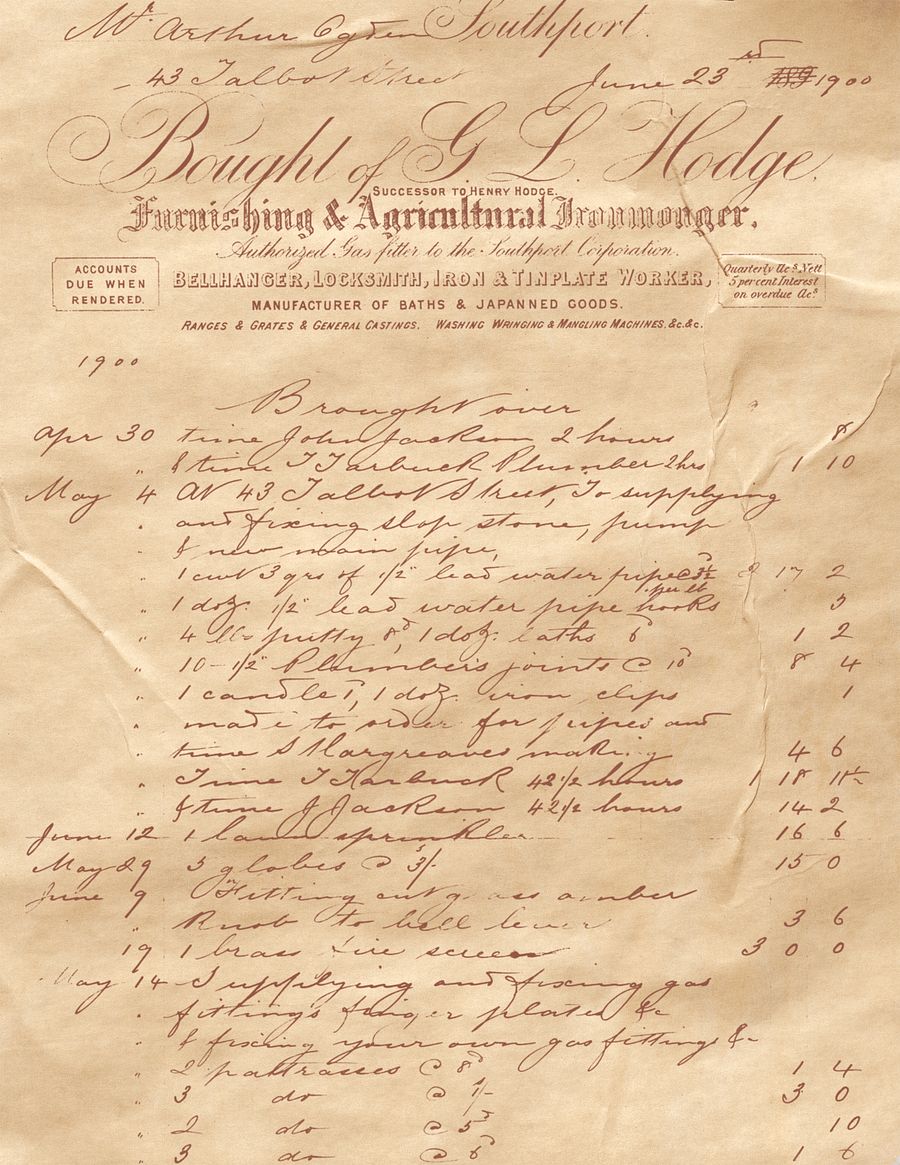 Mr. Arthur Ogden Southport.
43 Talbot Street June 23rd 189 1900
Bought of G L Hodge,
SUCCESSOR TO HENRY HODGE.
Furnishing & Agricultural Ironmonger.
Authorized Gas fitter to the Southport Corporation.
ACCOUNTS DUE WHEN RENDERED.
BELLHANGER, LOCKSMITH, IRON & TINPLATE WORKER,
Quarterly a/cs. Nett
5 percent Interest
on overdue a/cs
MANUFACTURER OF BATHS & JAPANNED GOODS.
RANGES & GRATES & GENERAL CASTINGS. WASHING WRINGING & MANGLING MACHINES, &c. &c.
1900
Brought over
Apr 30 time John Jackson 2 hours 8
" & time T Tarbuck Plumber 2hrs 1 10
May 4 At 43 Talbot Street, To supplying
" and fixing slop stone, pump
" & new main pipe,
" 1 cwt 3 qrs of 1/2" lead water pipe @ 3½d per lb 2 17 2
" 1 doz. 1/2" lead water pipe hooks 3
" 4 lbs putty 8d, 1 doz. laths 6d 1 2
" 10-1/2" Plumbers joints @ 10d 8 4
" 1 candle 1d, 1 doz. iron clips 1
" made to order for pipes and
" time S Hargreaves making 4 6
" Time T Tarbuck 42 1/2 hours 1 18 11½
" & time J Jackson 42 1/2 hours 14 2
June 12 1 lawn sprinkler 16 6
May 29 5 globes @ 3/- 15 0
June 9 Fitting cut glass amber
" Knob to bell lever 3 6
19 1 brass fire screen 3 0 0
May 14 Supplying and fixing gas
" fittings finger plates &c
" & fixing your own gas fittings &c
" 2 pattrasses @ 8d 1 4
" 3 do @ 1/- 3 0
" 2 do @ 5d 10
" 3 do @ 6d 1 6